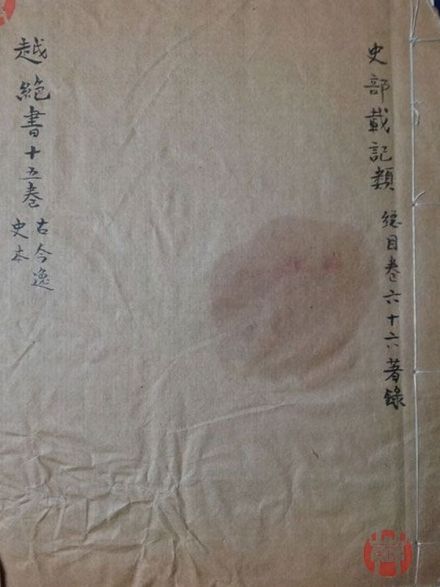 史部載記類 總目卷六十六著錄
越絶書十五卷
古今逸
史本